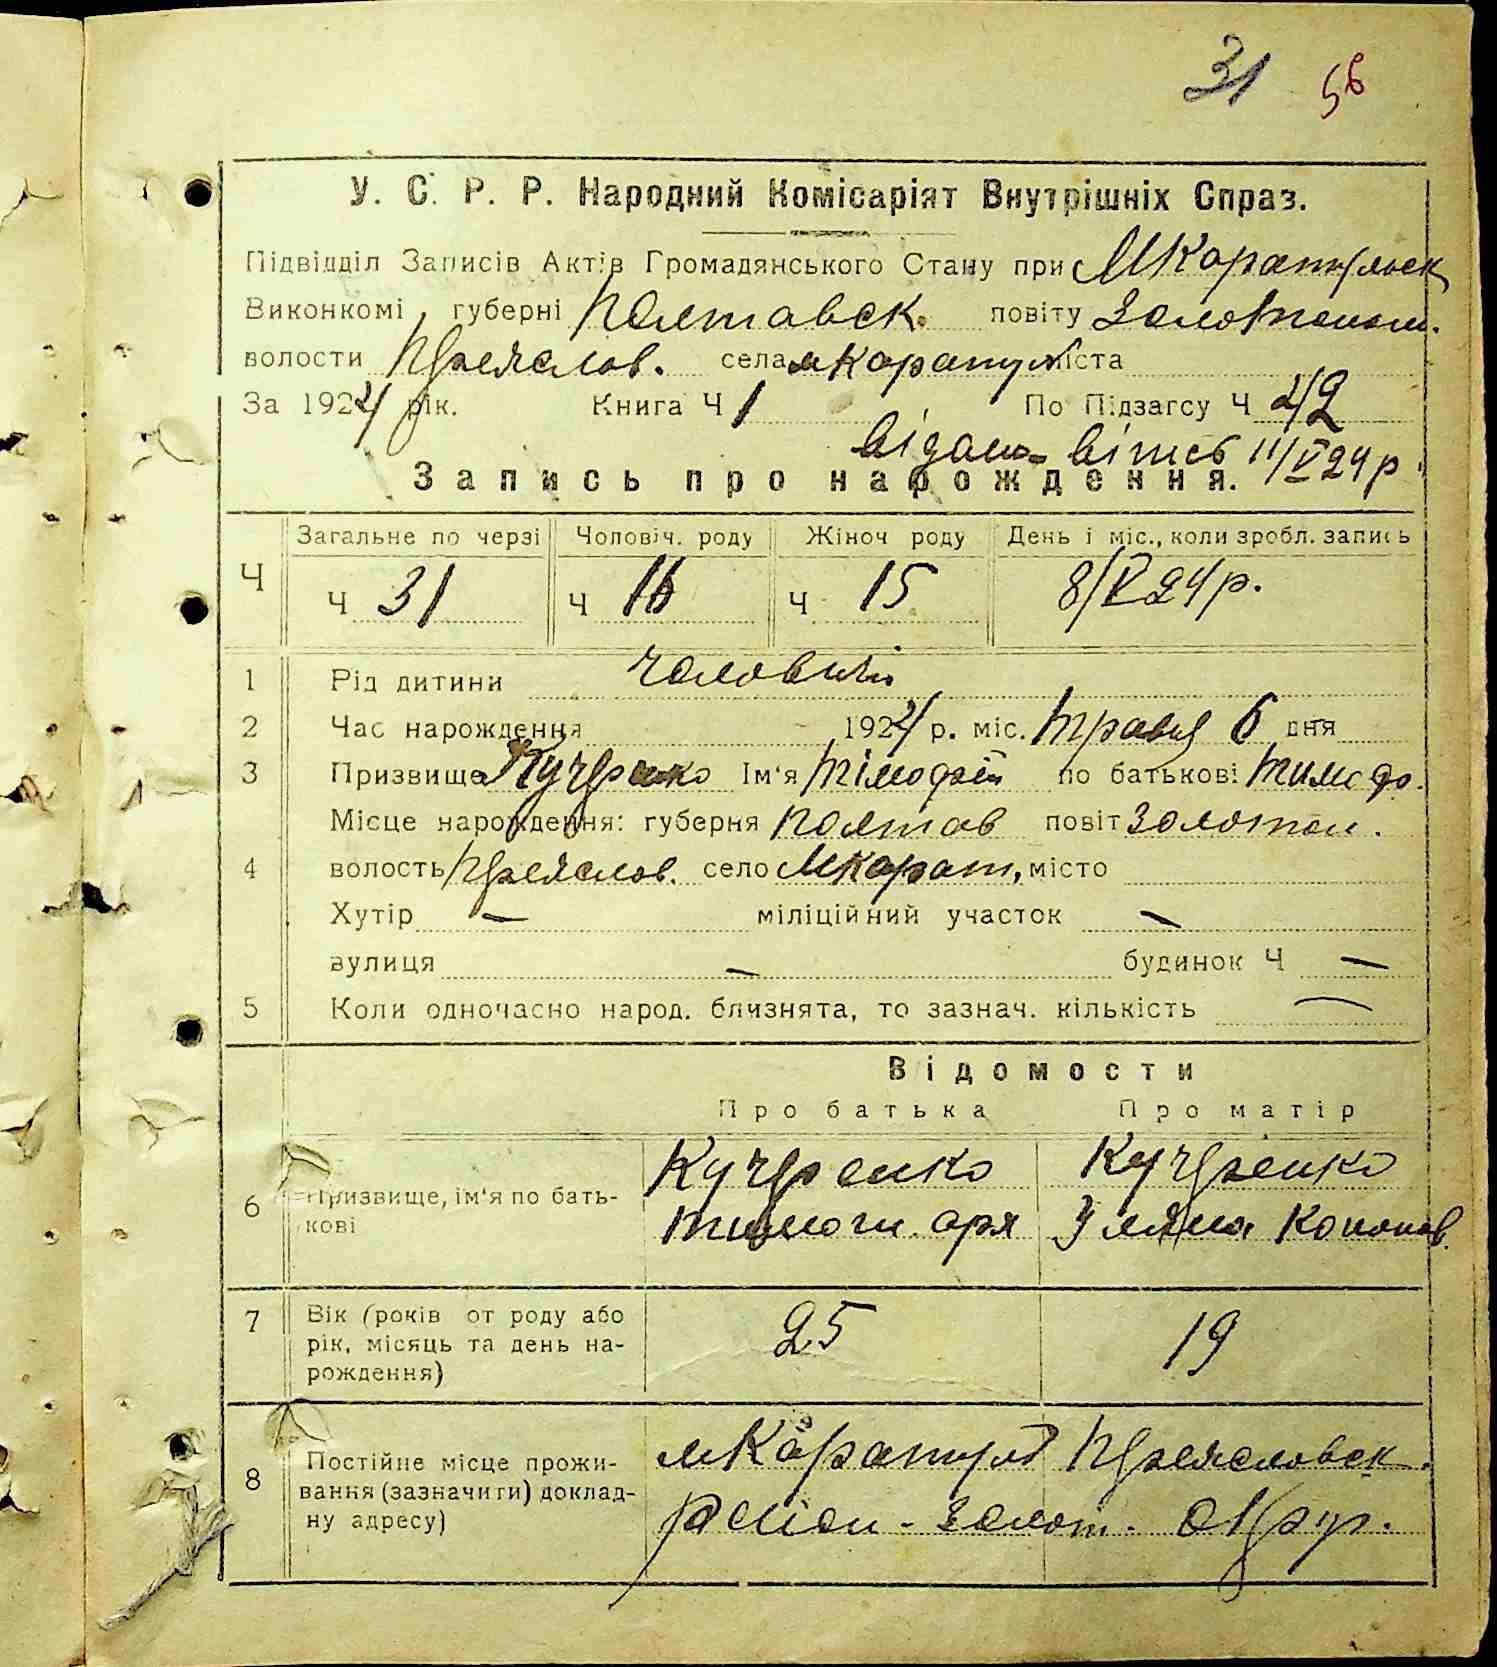 31 56
У. С. Р. Р. Народний Комісаріят Внутрішніх Спраз.
Підвідділ Записів Актів Громадянського Стану при МКаратульск
Виконкомі губерні Полтавск. повіту Золотонош.
волости Переяслов. села мКаратул міста
За 1924 рік. Книга Ч 1 По Підзагсу Ч 42
відан вітяг 11/V 24 р.
Запись про нарождення.
Ч Загальне по черзі Чоловіч. роду Жіноч роду День і міс., коли зробл. запись
Ч 31 Ч 16 Ч 15 8/V 24 р.
1 Рід дитини чоловичій
2 Час нарождення 1924 р. міс. Травня 6 дня
3 Призвище Кучеренко Ім'я Тімофій по батькові Тимоф.
Місце нарождення: губерня Полтав повіт Золотон.
4 волость Переяслов. село МКарат, місто
Хутір — міліційний участок —
вулиця — будинок Ч —
5 Коли одночасно народ. близнята, то зазнач. кількість —
Відомости
Про батька Про матір
6 Призвище, ім'я по бать-
кові
Кучеренко Кучеренко
Уляна Кононов.
7 Вік (років от роду або
рік, місяць та день на-
рождення)
25 19
8 Постійне місце прожи-
вання (зазначити) доклад-
ну адресу)
мКаратул Переясловск.
район - Золот. Округ.